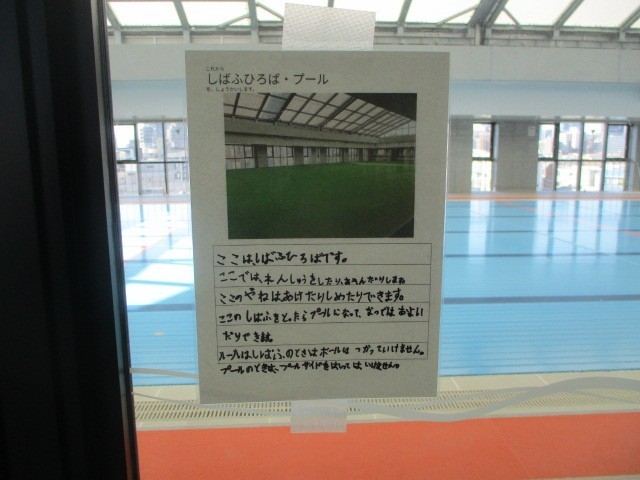 これから
しばふひろば・プール
を、しょうかいします。
ここは、しばふひろばです。
ここでは、れんしゅうをしたり、あそんだりします。
ここのやねはあけたりしめたりできます。
ここのしばふをとったらプールになって、なつでは およい
だりできます。
ルールは、しばふのときはボールは つかっていけません。
プールのときは、プールサイドをはしっては いけません。